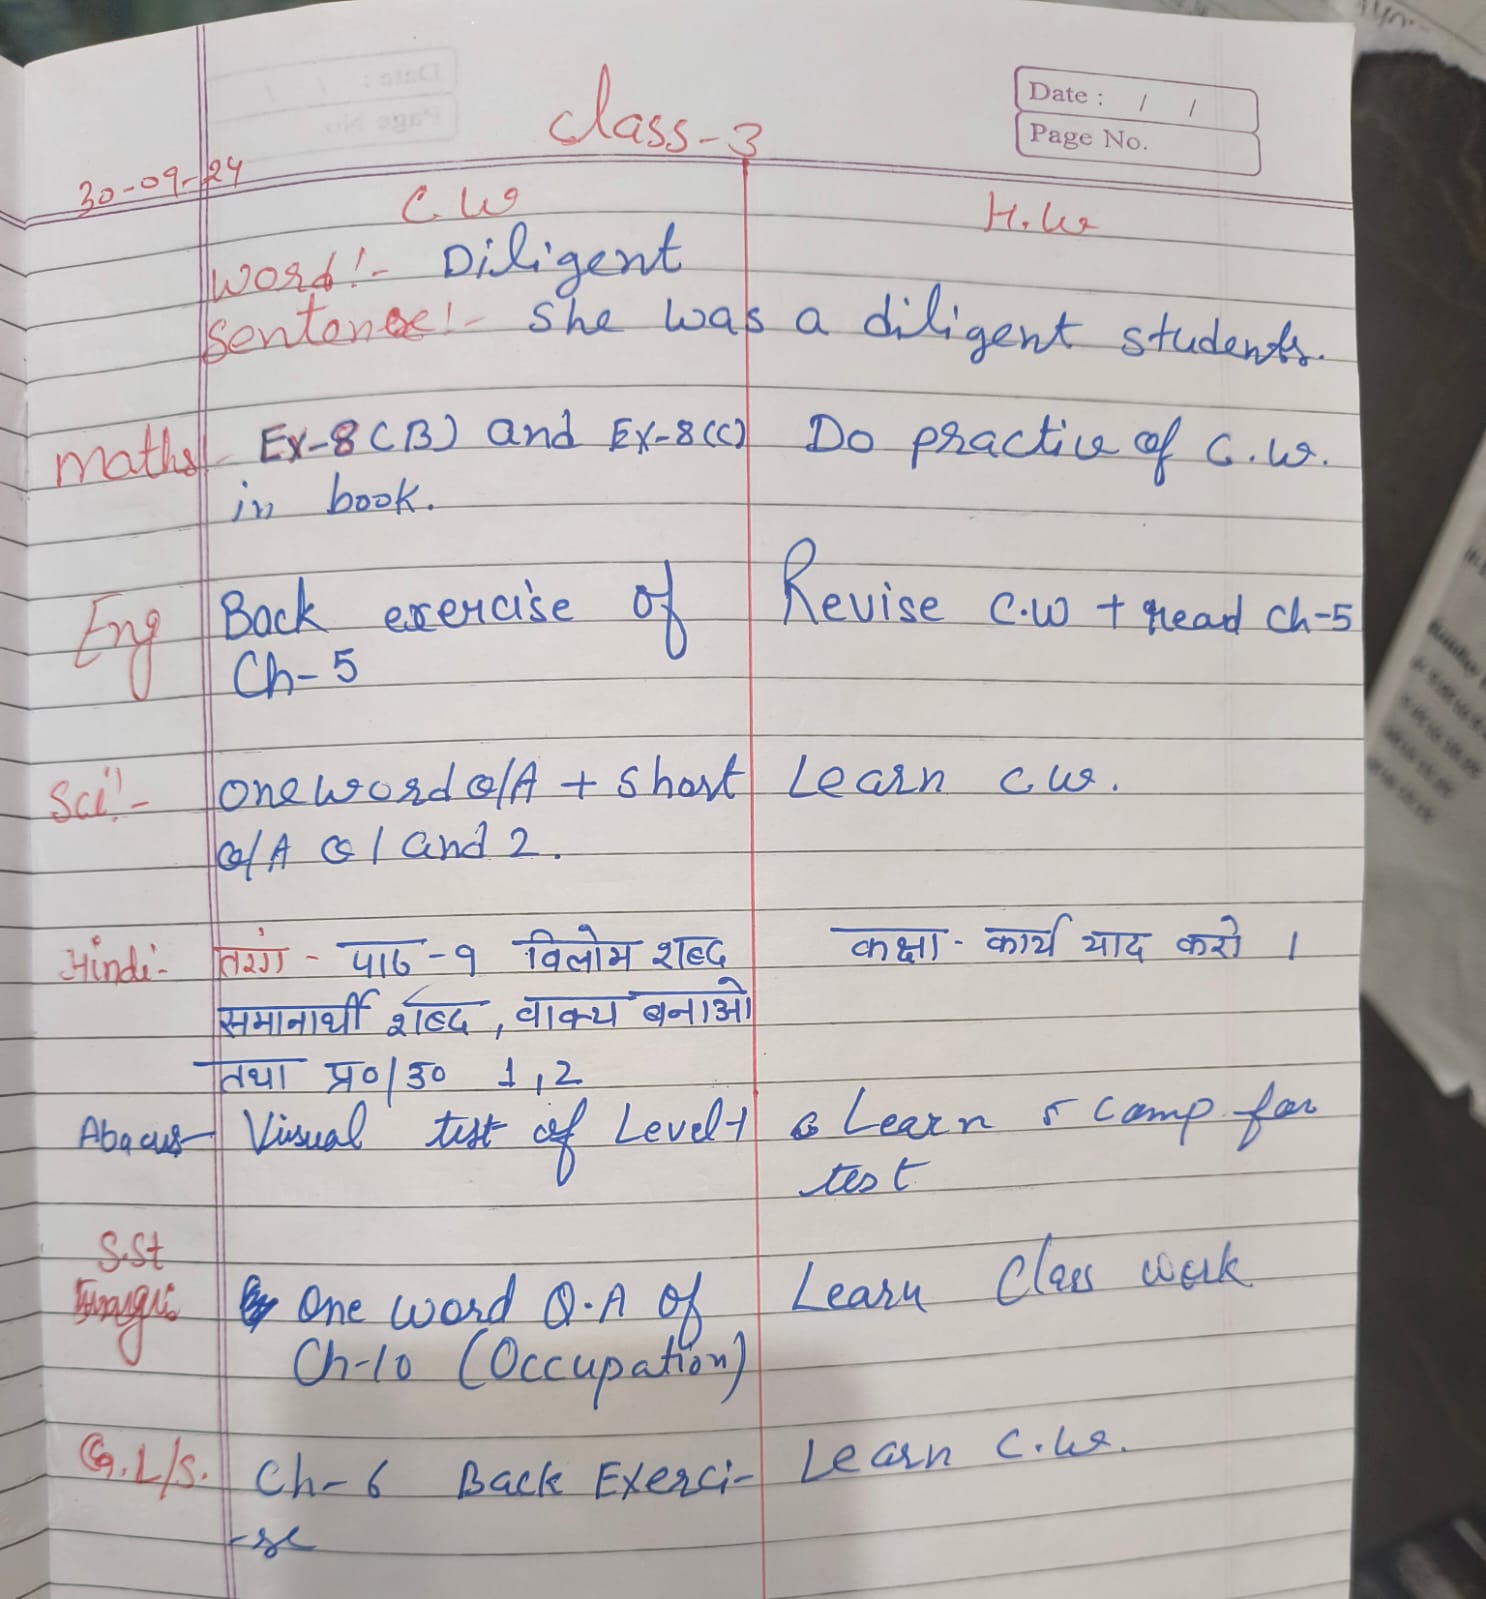 Class-3
Date : / /
Page No.
30-09-24
C.W H.W
Word:- Diligent
Sentence:- She was a diligent students.
Maths- Ex-8(B) and Ex-8(C) Do practice of C.W.
in book.
Eng Back exercise of Revise C.W + Read Ch-5
Ch-5
Sci:- One word Q/A + Short Learn C.W.
Q/A Q1 and 2.
Hindi- तरंग - पाठ-१ विलोम शब्द कक्षा - कार्य याद करो ।
समानार्थी शब्द, वाक्य बनाओ
तथा प्र०/उ० 1,2
Abacus- Visual test of Level-1 Learn 5 comp for
test
S.St
One word Q.A of Learn Class work
Ch-10 (Occupation)
G.L/S. Ch-6 Back Exerci- Learn C.W.
-se